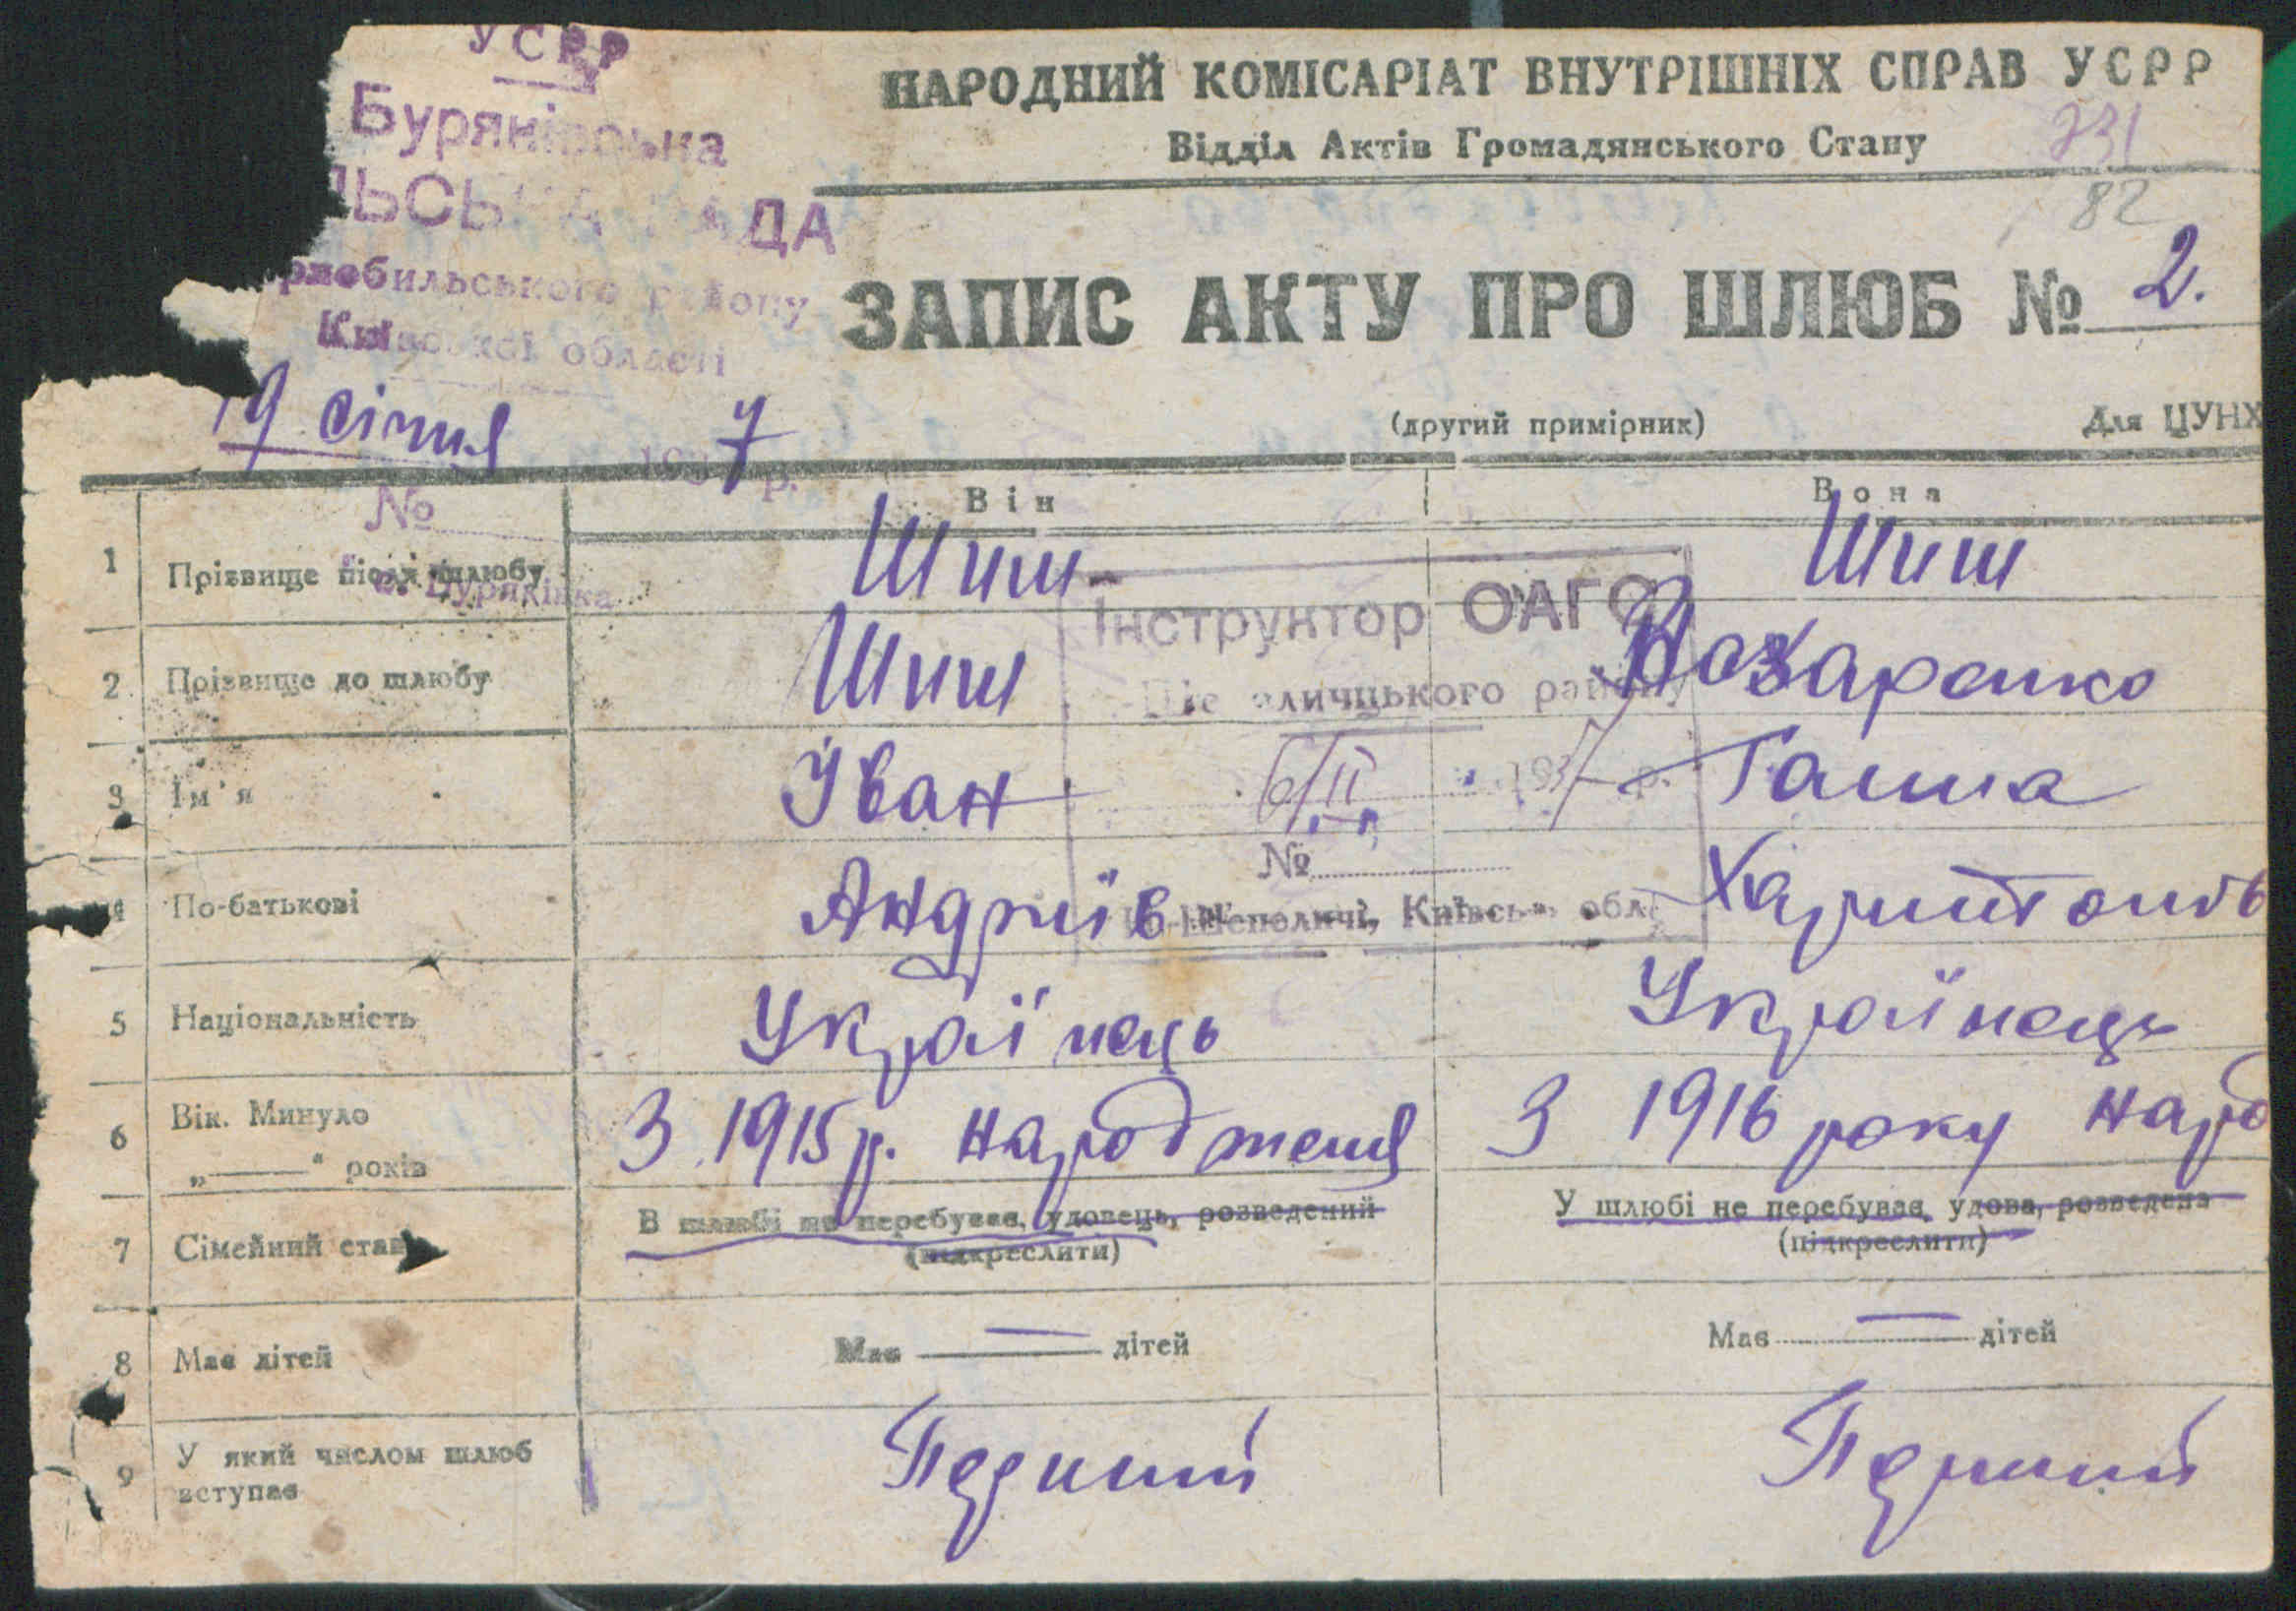 УСРР
Буряківська
ЛЬСЬКА РАДА
рнобильського району
Київської області
19 січня 1937 р.
№
с. Буряківка
НАРОДНИЙ КОМІСАРІАТ ВНУТРІШНІХ СПРАВ УСРР
Відділ Актів Громадянського Стану
231
82
ЗАПИС АКТУ ПРО ШЛЮБ № 2.
(другий примірник) Для ЦУНХ
Він Вона
1 Прізвище після шлюбу Шиш Шиш
2 Прізвище до шлюбу Шиш Назаренко
3 Ім'я Іван Ганна
4 По-батькові Андріїв Харитонів
5 Національність Українець Українець
6 Вік. Минуло „——" років З 1915 р. народження З 1916 року народ
7 Сімейний стан В шлюбі не перебуває, удовець, розведений (підкреслити) У шлюбі не перебуває, удова, розведена (підкреслити)
8 Має дітей Має — дітей Має — дітей
9 У який числом шлюб вступає Перший Перший
Інструктор ОАГС
району
6/II 1937 р.
№
Шепеличі, Київськ. обл.